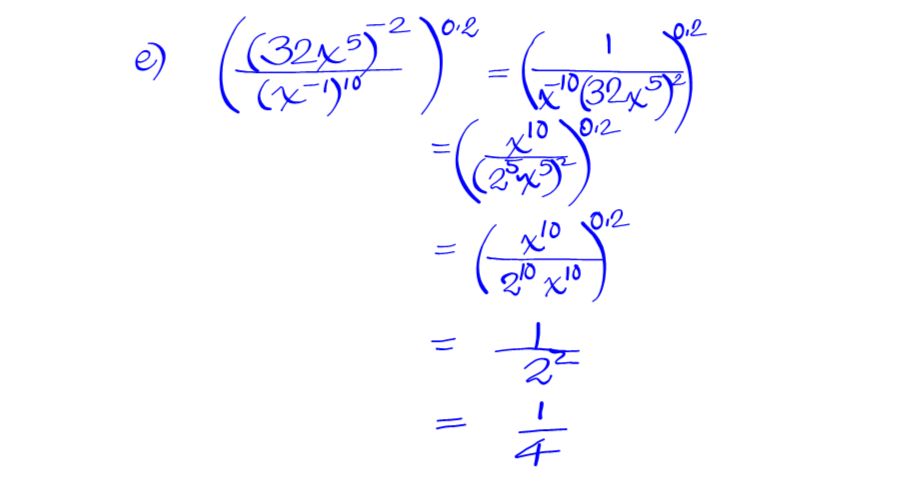 e) ((32x⁵)⁻² / (x⁻¹)¹⁰)^0.2 = (1 / x⁻¹⁰(32x⁵)²)^0.2
= (x¹⁰ / (2⁵x⁵)²)^0.2
= (x¹⁰ / 2¹⁰ x¹⁰)^0.2
= 1 / 2²
= 1 / 4